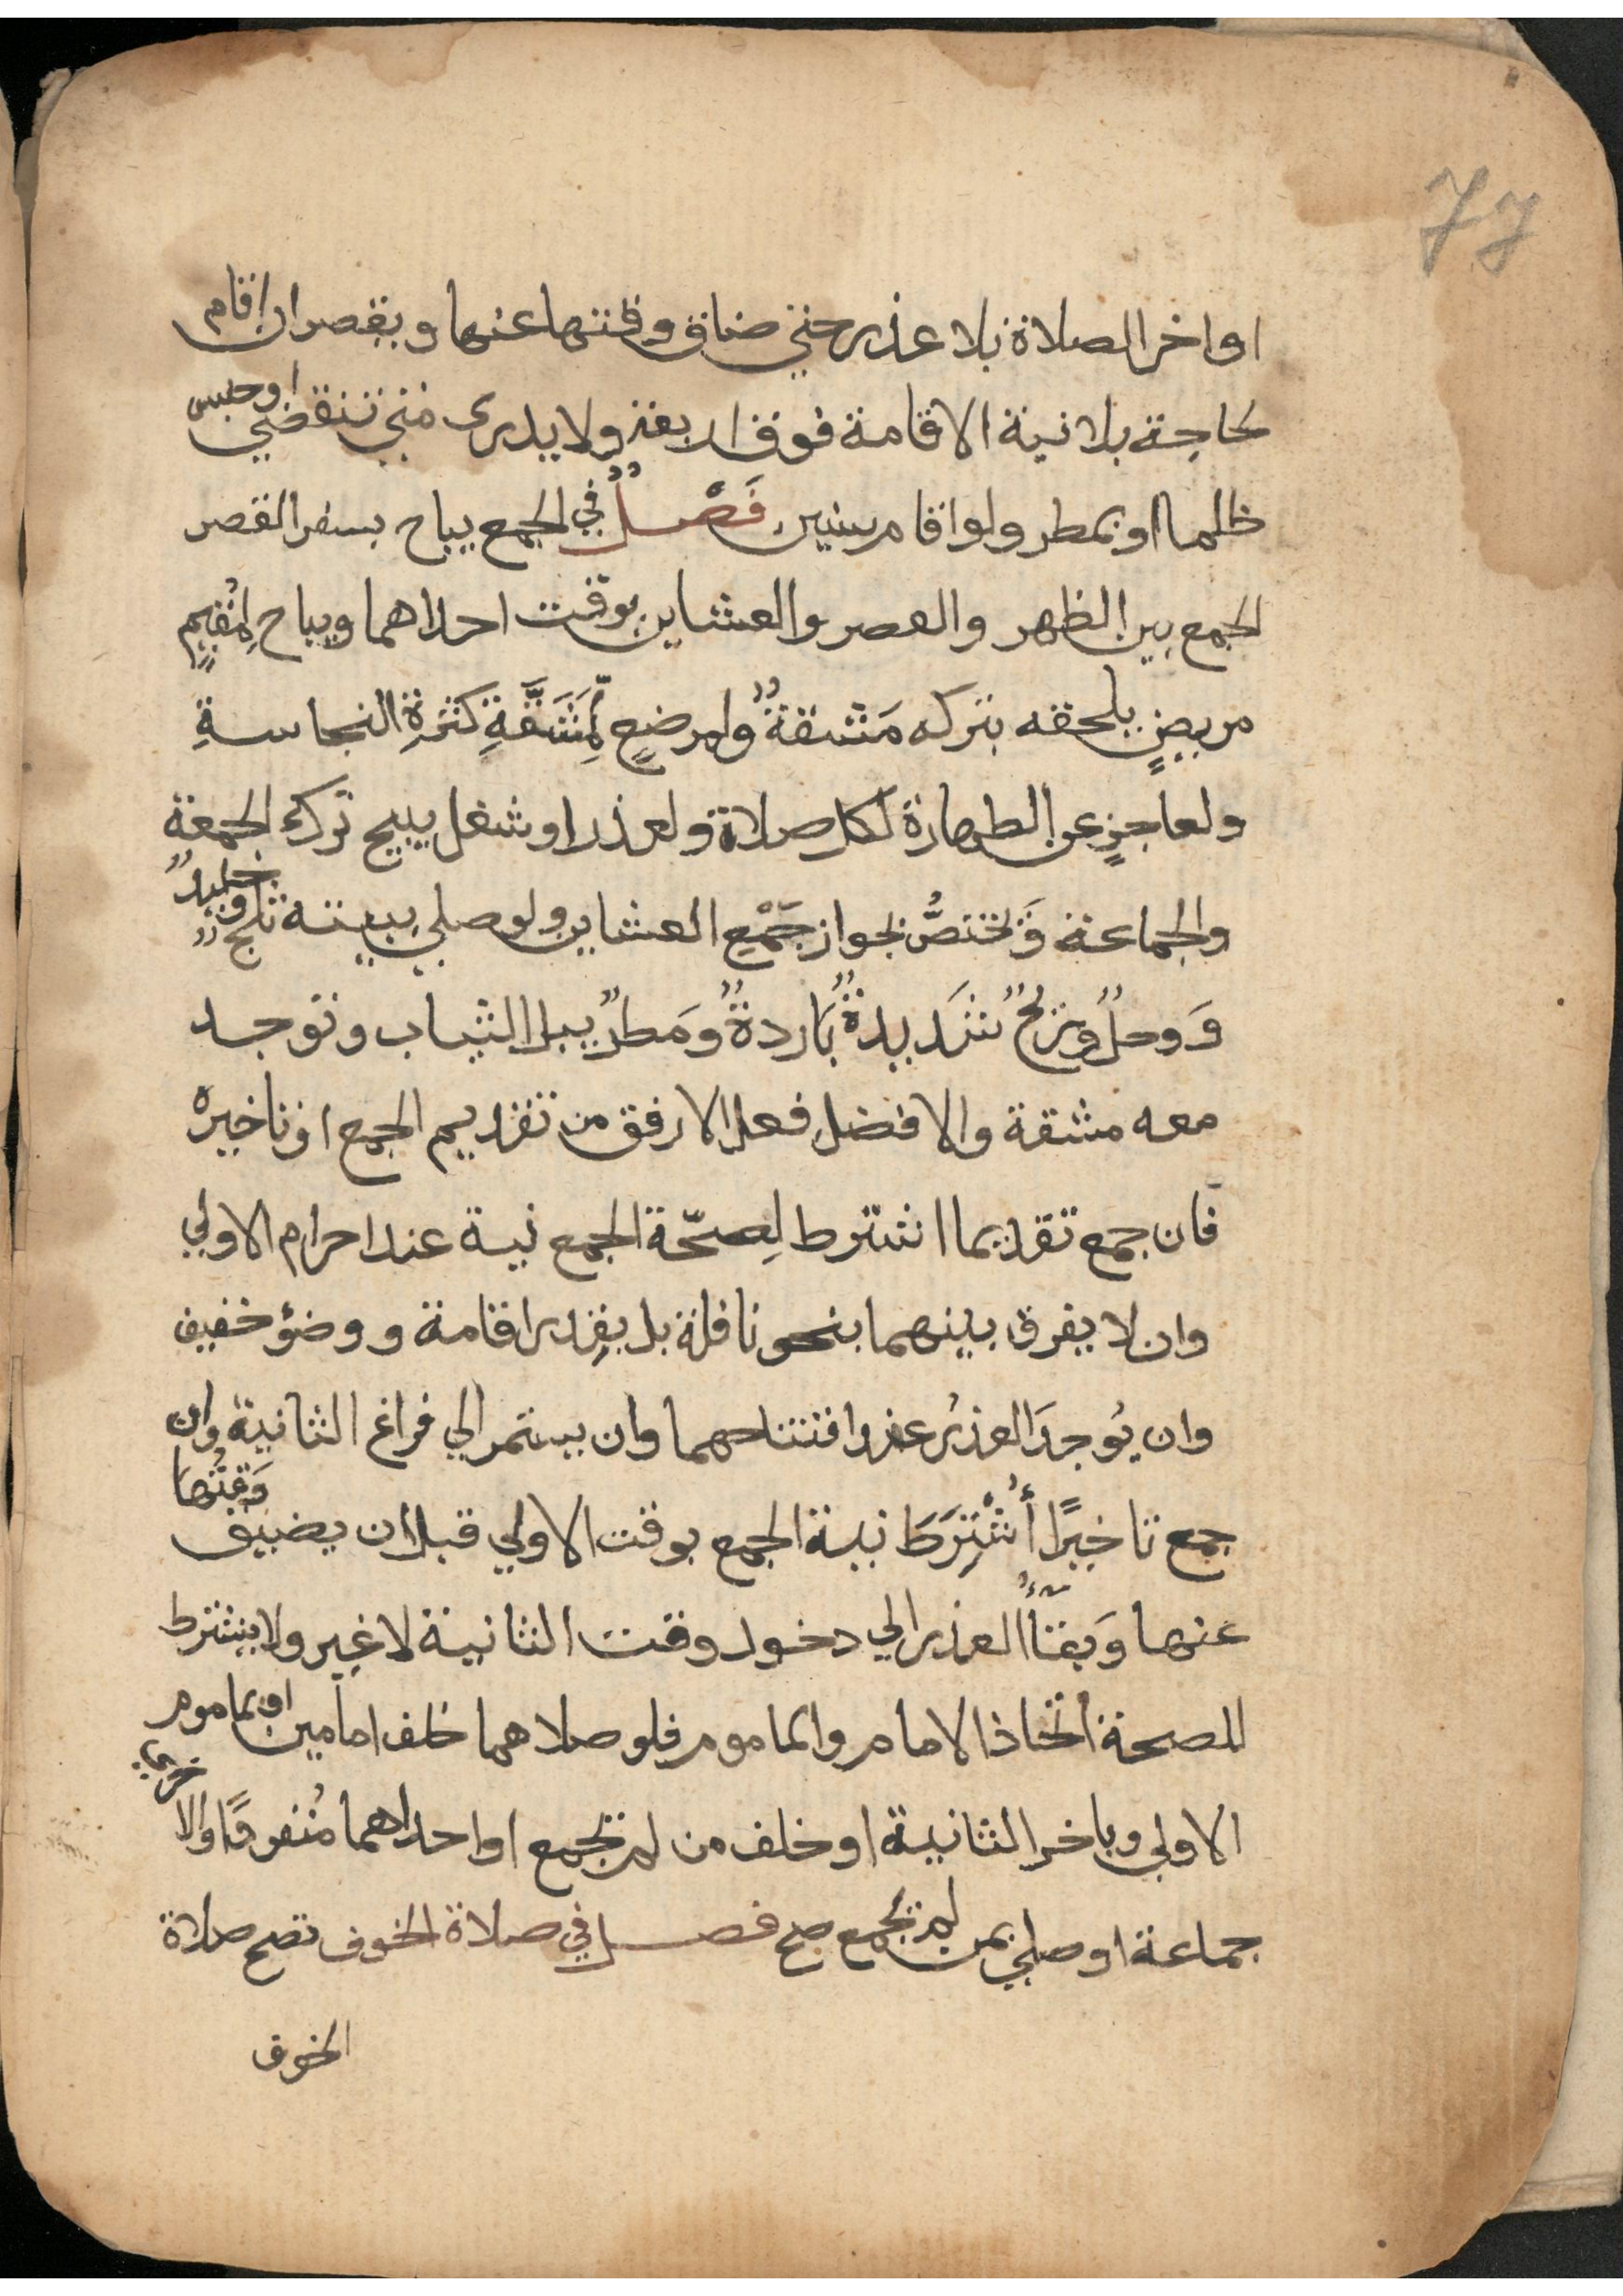 77
او اخر الصلاة بلا عذر حتي ضاق وقتها عنها ويقصر ان اقام
لحاجة بلا نية الاقامة فوق اربعة ولا يدرى متي تنقضي او حبس
ظلما او بمطر ولو اقام سنين فَصْلٌ في الجمع يباح بسفر القصر
الجمع بين الظهر والعصر والعشاين بوقت احداهما ويباح لِمُقِيمٍ
مريضٍ يلحقه بتركه مَشقةٌ ولمرضعٍ لِمَشَقَّةِ كَثرةِ النجاسةِ
ولعاجزٍ عن الطهارة لكل صلاة ولعذر او شغل يبيح ترك الجمعة
والجماعة وَتختصُّ بجواز جَمْعِ العشاين ولو صلي ببيته ثلج وجليدٌ
وَوحلٌ وريحٌ شَديدةٌ بَاردةٌ ومَطرٌ يبل الثياب وتوجد
معه مشقة والافضل فعل الارفق من تقديم الجمع او تاخيره
فان جمع تقديما اشترط لِصحّة الجمع نية عند احرام الاولي
وان لا يفرق بينهما بنحو نافلة بل بقدر اقامة ووضؤ خفيف
وان يُوجدَ العذرُ عند افتتاحهما وان يستمر الي فراغ الثانية وان
جمع تاخيرًا أُشْتِرَطَ نية الجمع بوقت الاولي قبل ان يضيق وَقتُها
عنها وَبقآءُ العذر الي دخول وقت الثانية لا غير ولا يشترط
للصحة اتخاذ الامام والماموم فلو صلاهما خلف امامين او بماموم
الاولي وباخر الثانية او خلف من لم يجمع او احداهما مُنفردًا والاخري
جماعة او صلي بمن لم يجمع صح فصل في صلاة الخوف تصح صلاة
الخوف